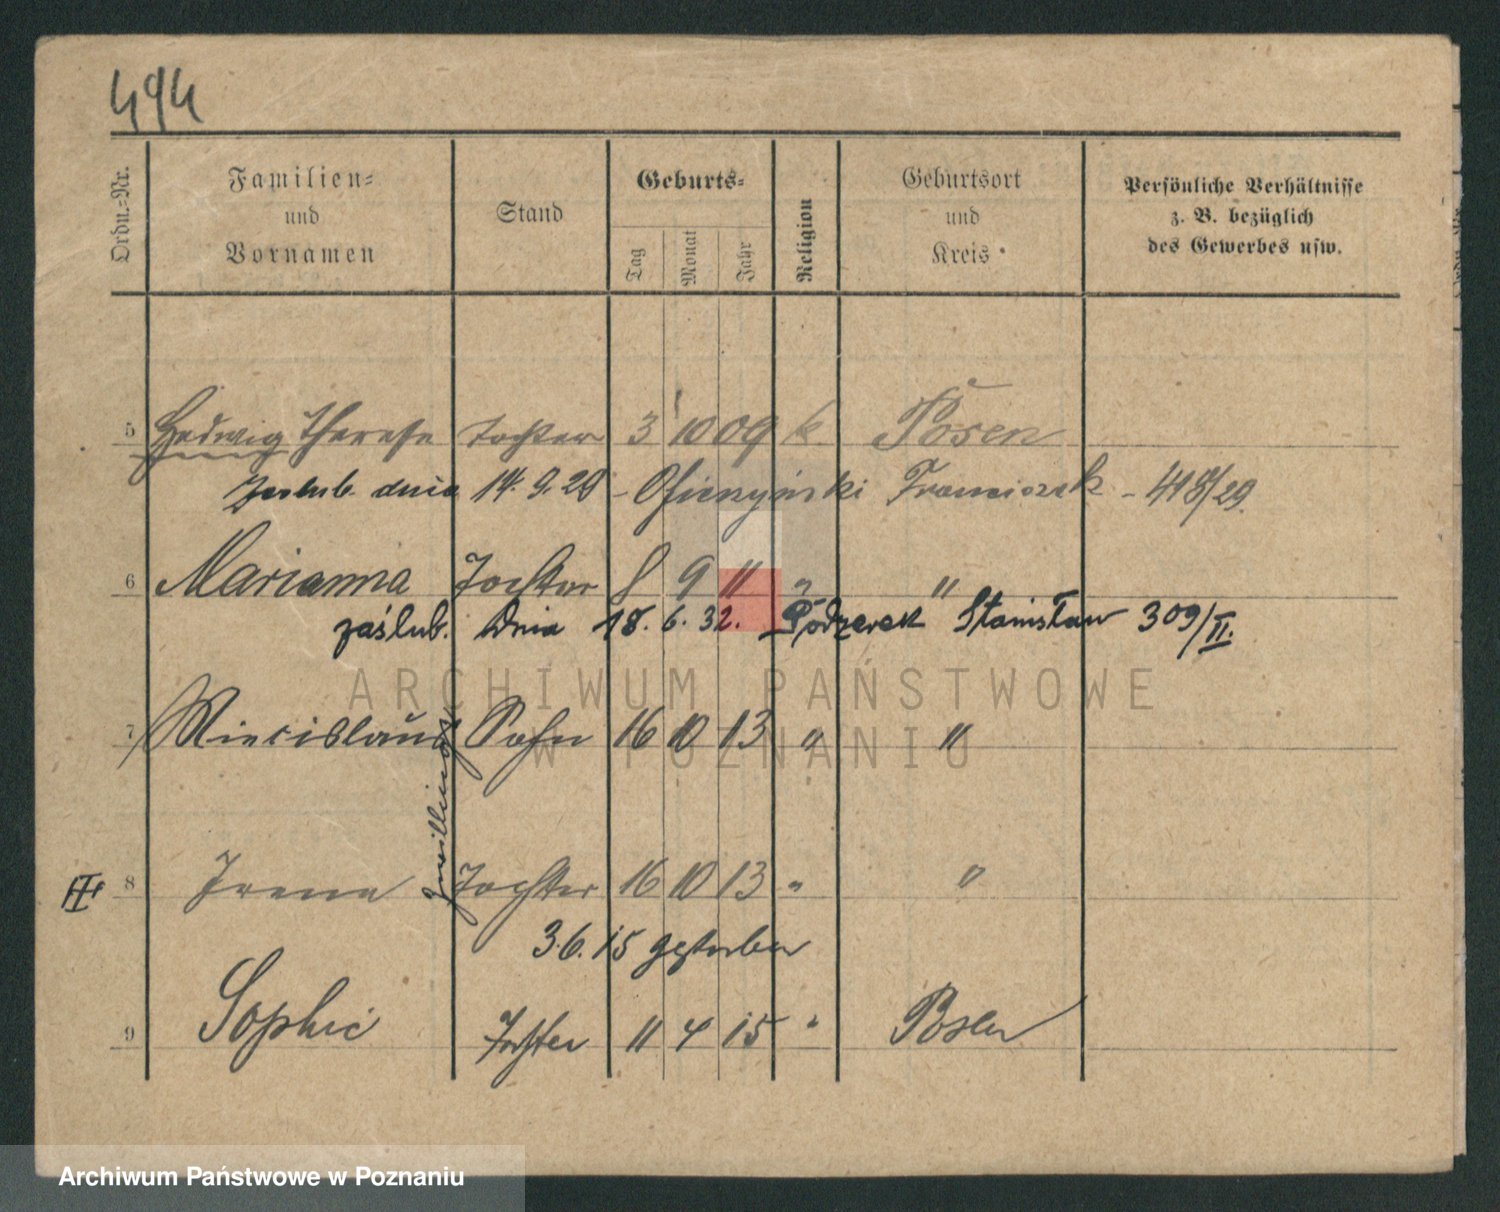 494
Ordn.-Nr.
Familien-
und
Vornamen
Stand
Geburts-
Tag
Monat
Jahr
Religion
Geburtsort
und
Kreis
Persönliche Verhältnisse
z. B. bezüglich
des Gewerbes usw.
5 Hedwig Therese Tochter 3 10 09 k Posen
zaslub. dnia 14. 9. 29 - Franciszek - 418/29.
6 Marianna Tochter 8 9 11 " "
zaślub. dnia 18. 6. 32. Podzerek Stanisław 309/II.
7 Miecislaus Sohn 16 10 13 " "
zwillinge
8 Irene Tochter 16 10 13 " "
3.6.15 gestorben
9 Sophie Tochter 11 4 15 " Posen
ARCHIWUM PAŃSTWOWE
W POZNANIU
Archiwum Państwowe w Poznaniu